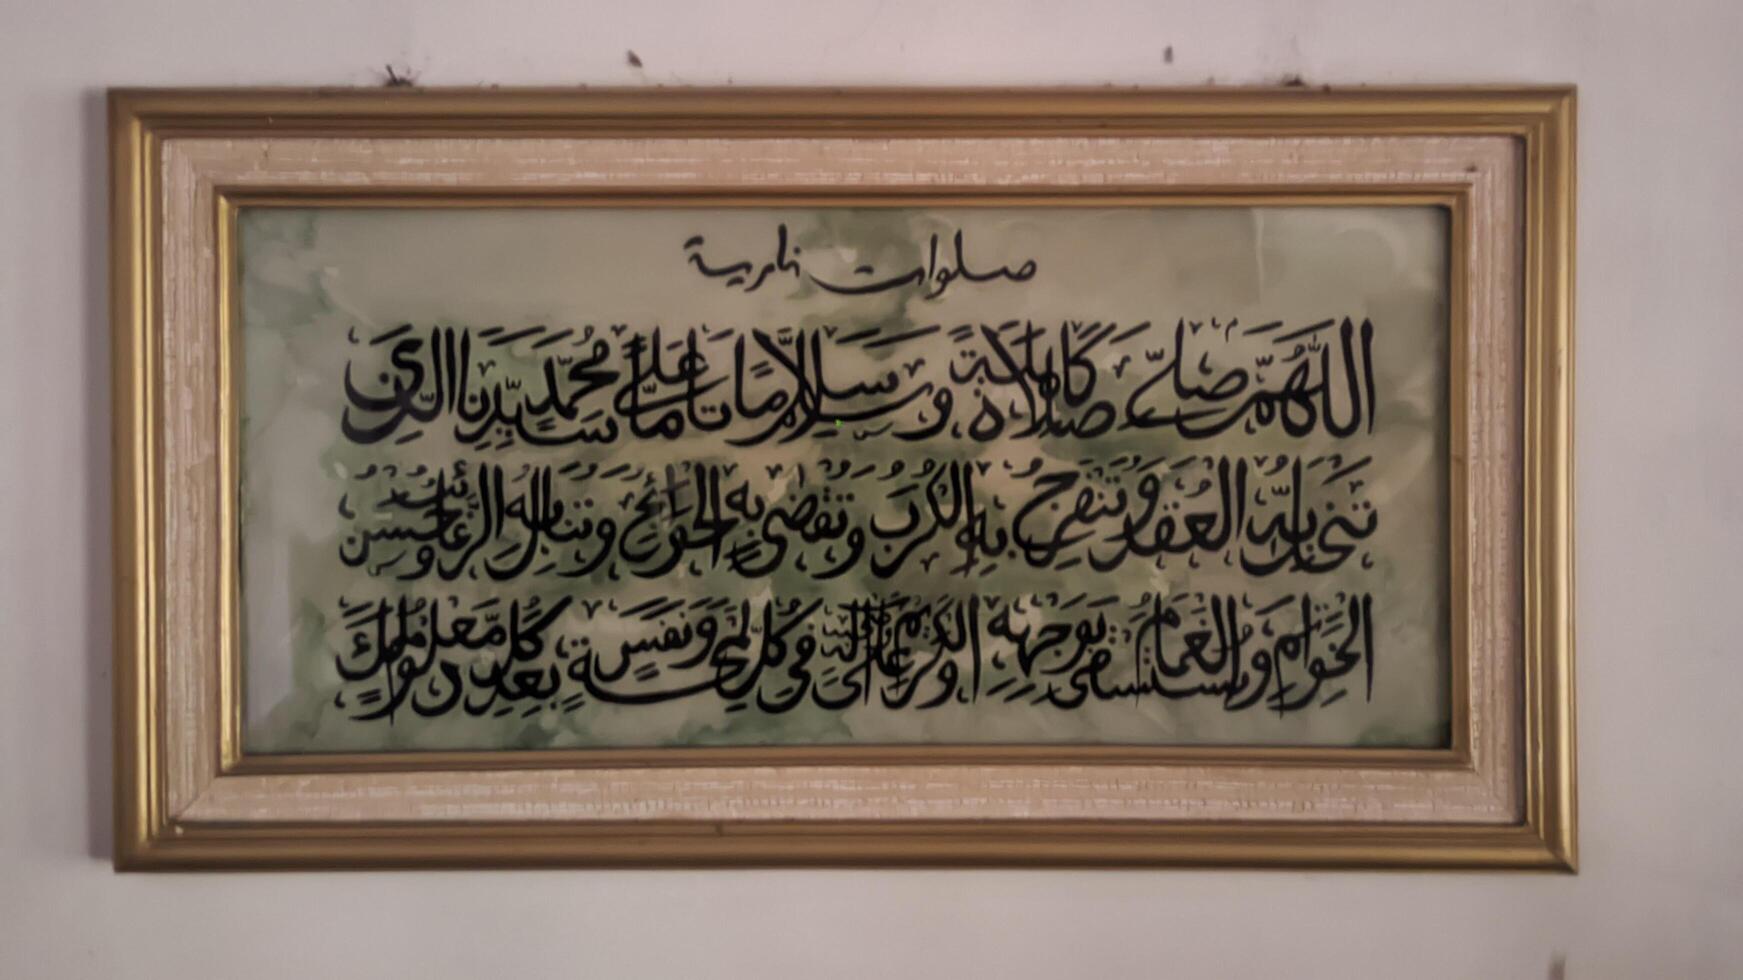 صلوات نارية
اللَّهُمَّ صَلِّ صَلَاةً كَامِلَةً وَسَلِّمْ سَلَامًا تَامًّا عَلَى سَيِّدِنَا مُحَمَّدٍ الَّذِي
تَنْحَلُّ بِهِ الْعُقَدُ وَتَنْفَرِجُ بِهِ الْكُرَبُ وَتُقْضَى بِهِ الْحَوَائِجُ وَتُنَالُ بِهِ الرَّغَائِبُ وَحُسْنُ
الْخَوَاتِمِ وَيُسْتَسْقَى الْغَمَامُ بِوَجْهِهِ الْكَرِيمِ وَعَلَى آلِهِ فِي كُلِّ لَمْحَةٍ وَنَفَسٍ بِعَدَدِ كُلِّ مَعْلُومٍ لَكَ